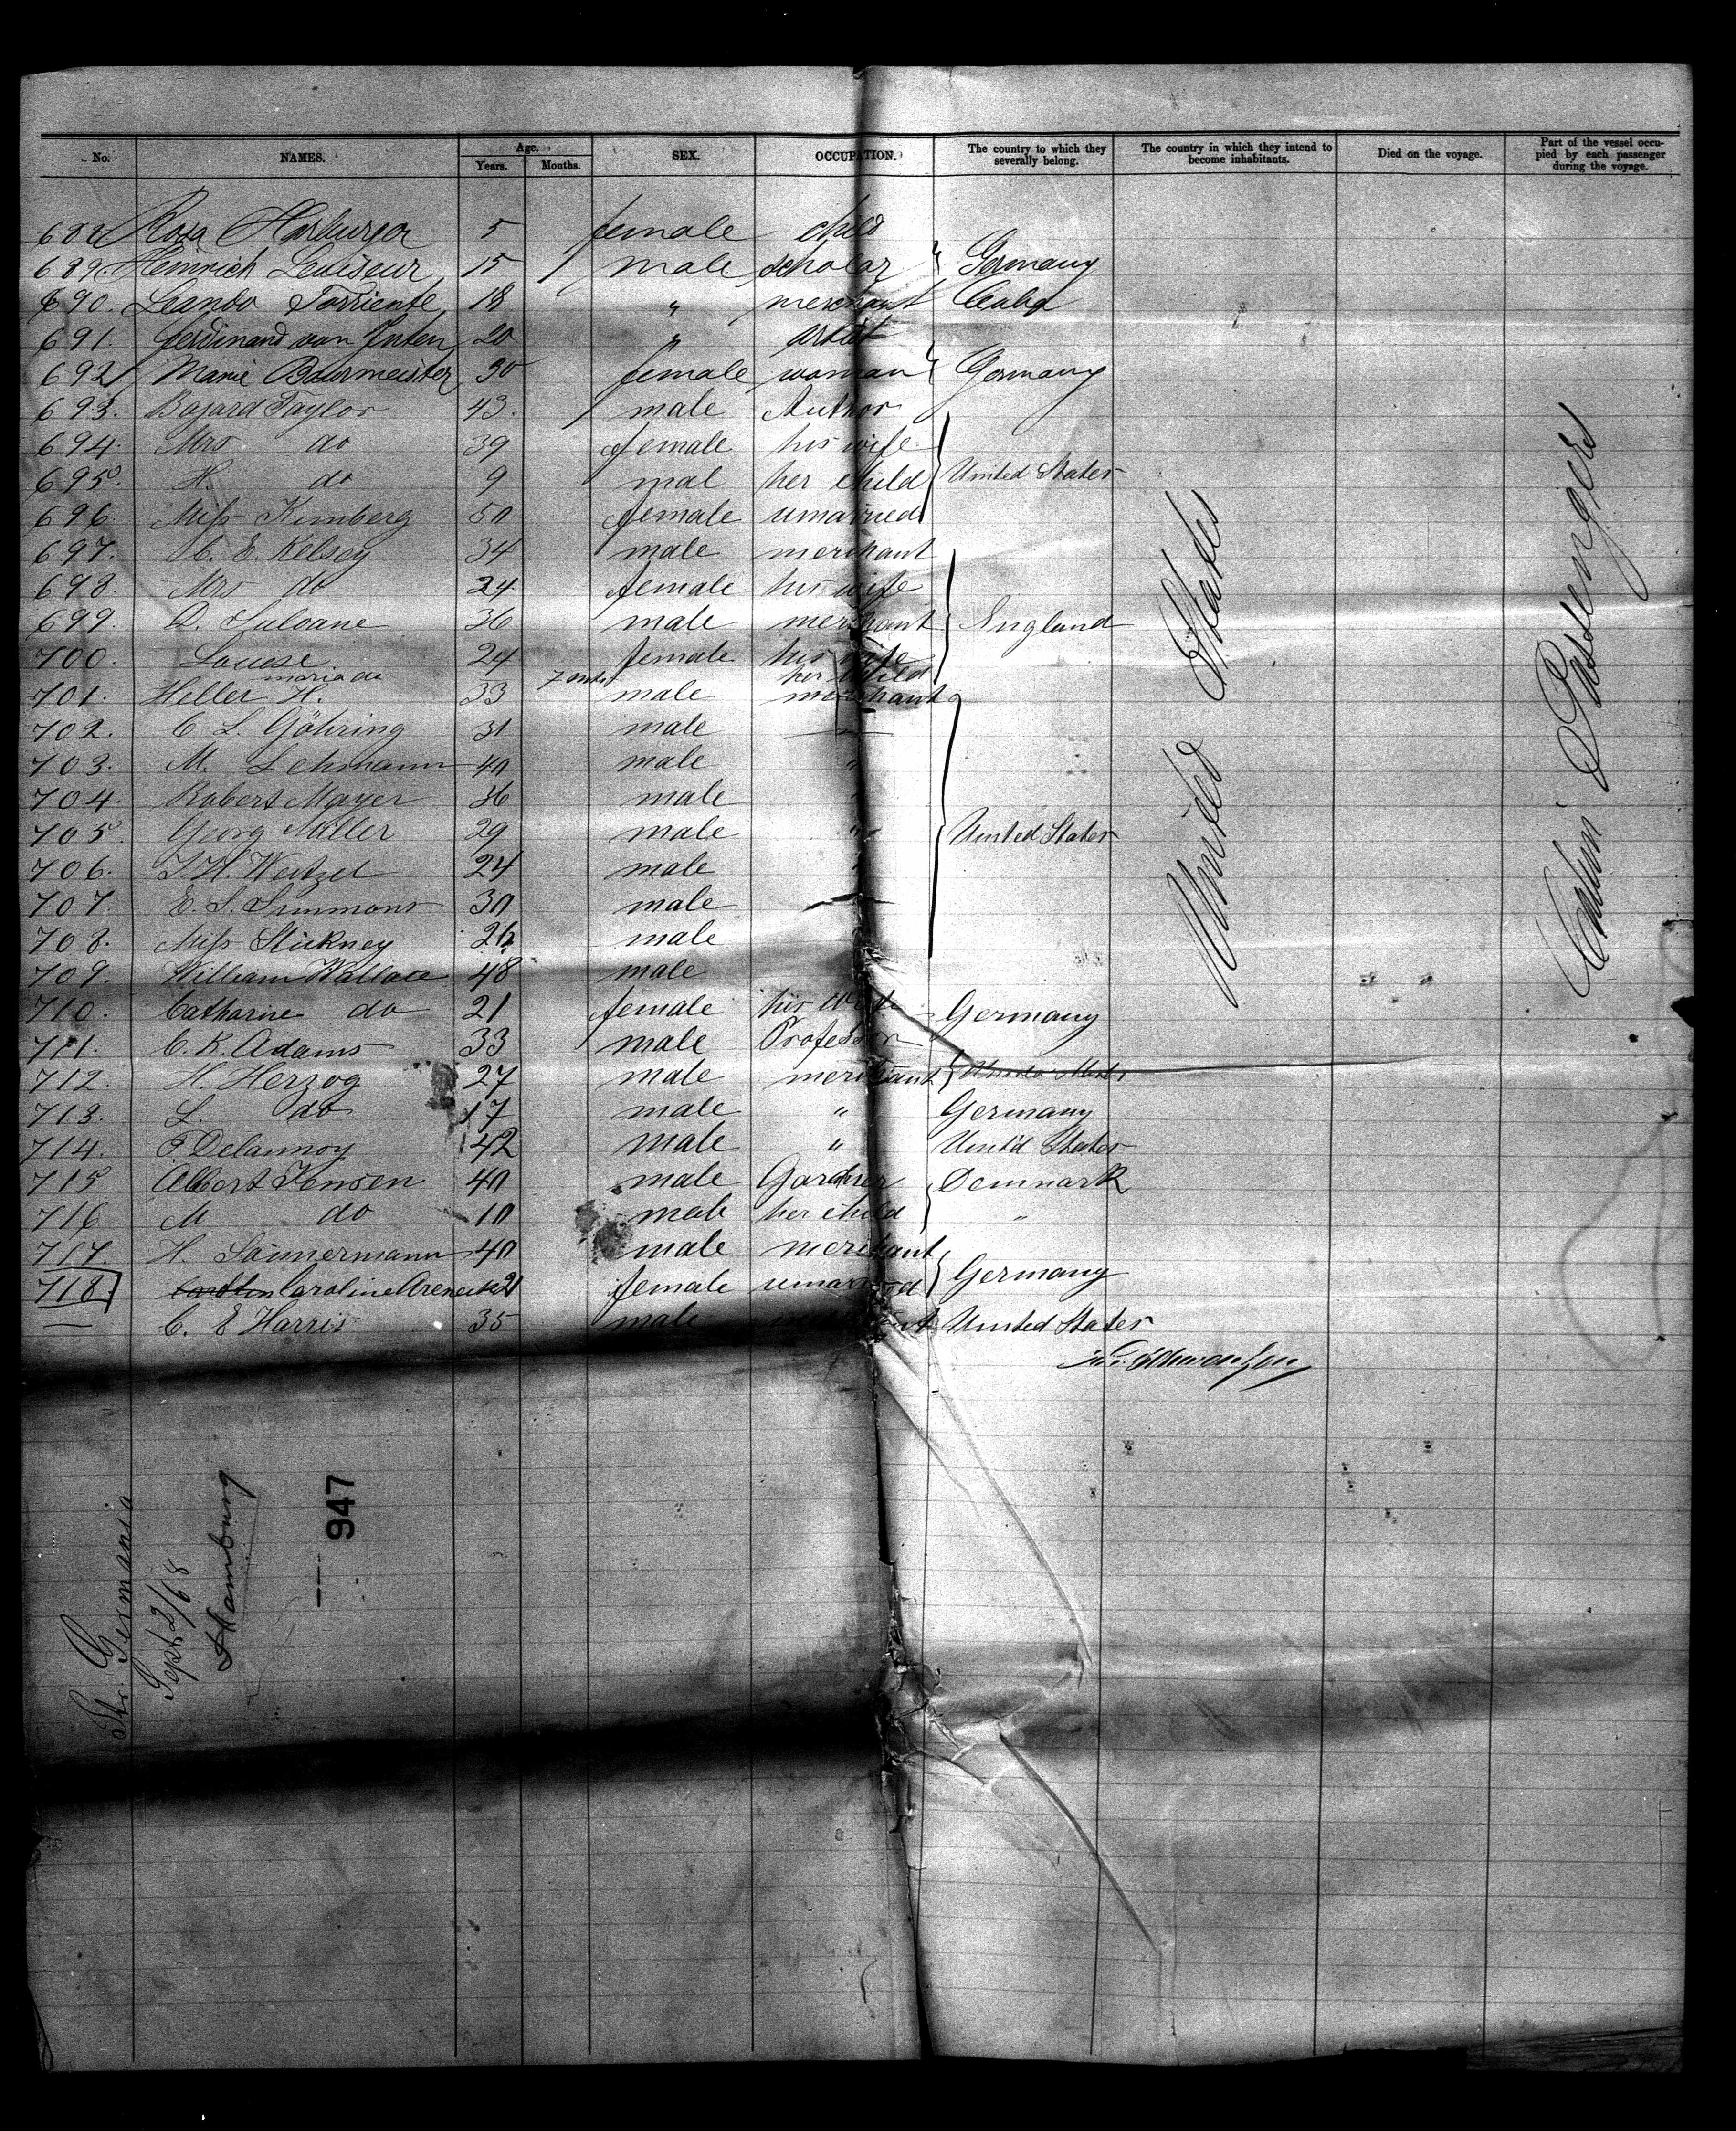 No. NAMES. Age. Years. Months. SEX. OCCUPATION. The country to which they severally belong. The country in which they intend to become inhabitants. Died on the voyage. Part of the vessel occupied by each passenger during the voyage.
688 Rosa Harburger 5 female child
689. Heinrich Leviseur 15 male scholar Germany
690. Leando Torriente 18 " merchant Cuba
691. Ferdinand von Inten 20 " artist
692 Marie Baurmeister 30 female woman Germany
693. Bajard Taylor 43. male Author
694. Mrs do 39 female his wife
695. H. do 9 mal her child United States
696. Miss Kimberg 50 female umarried
697. C. E. Kelsey 34 male merchant
698. Mrs do 24 female his wife
699. D. 36 male merchant England
700. Louise 24 female his wife
maria do 7 her child
701. Heller H. 33 male merchant
702. C L. Göhring 31 male
703. M. Lehmann 40 male "
704. Robert Mayer 36 male
705. Georg Miller 29 male " United States
706. Wetzel 24 male
707. E. S. Simmons 30 male
708. Miss Stickney male
709. William Wallace 48 male
710. Catharine do 21 female his Wife Germany
711. C. K. Adams 33 male Professor
712. H. Herzog 27 male merchant United States
713. L. do 17 male " Germany
714. Delannoy 42 male " Unitd States
715 Albert Jensen 40 male Gardner Denmark
716 M do 10 male her child "
717 H. Sannermann 40 male merchant
718. Caroline 21 female umarried Germany
— C. E Harris 35 male merchant United States
United States
Cabin Passengers
Str. Germania
Sept 2/68
Hamburg
947